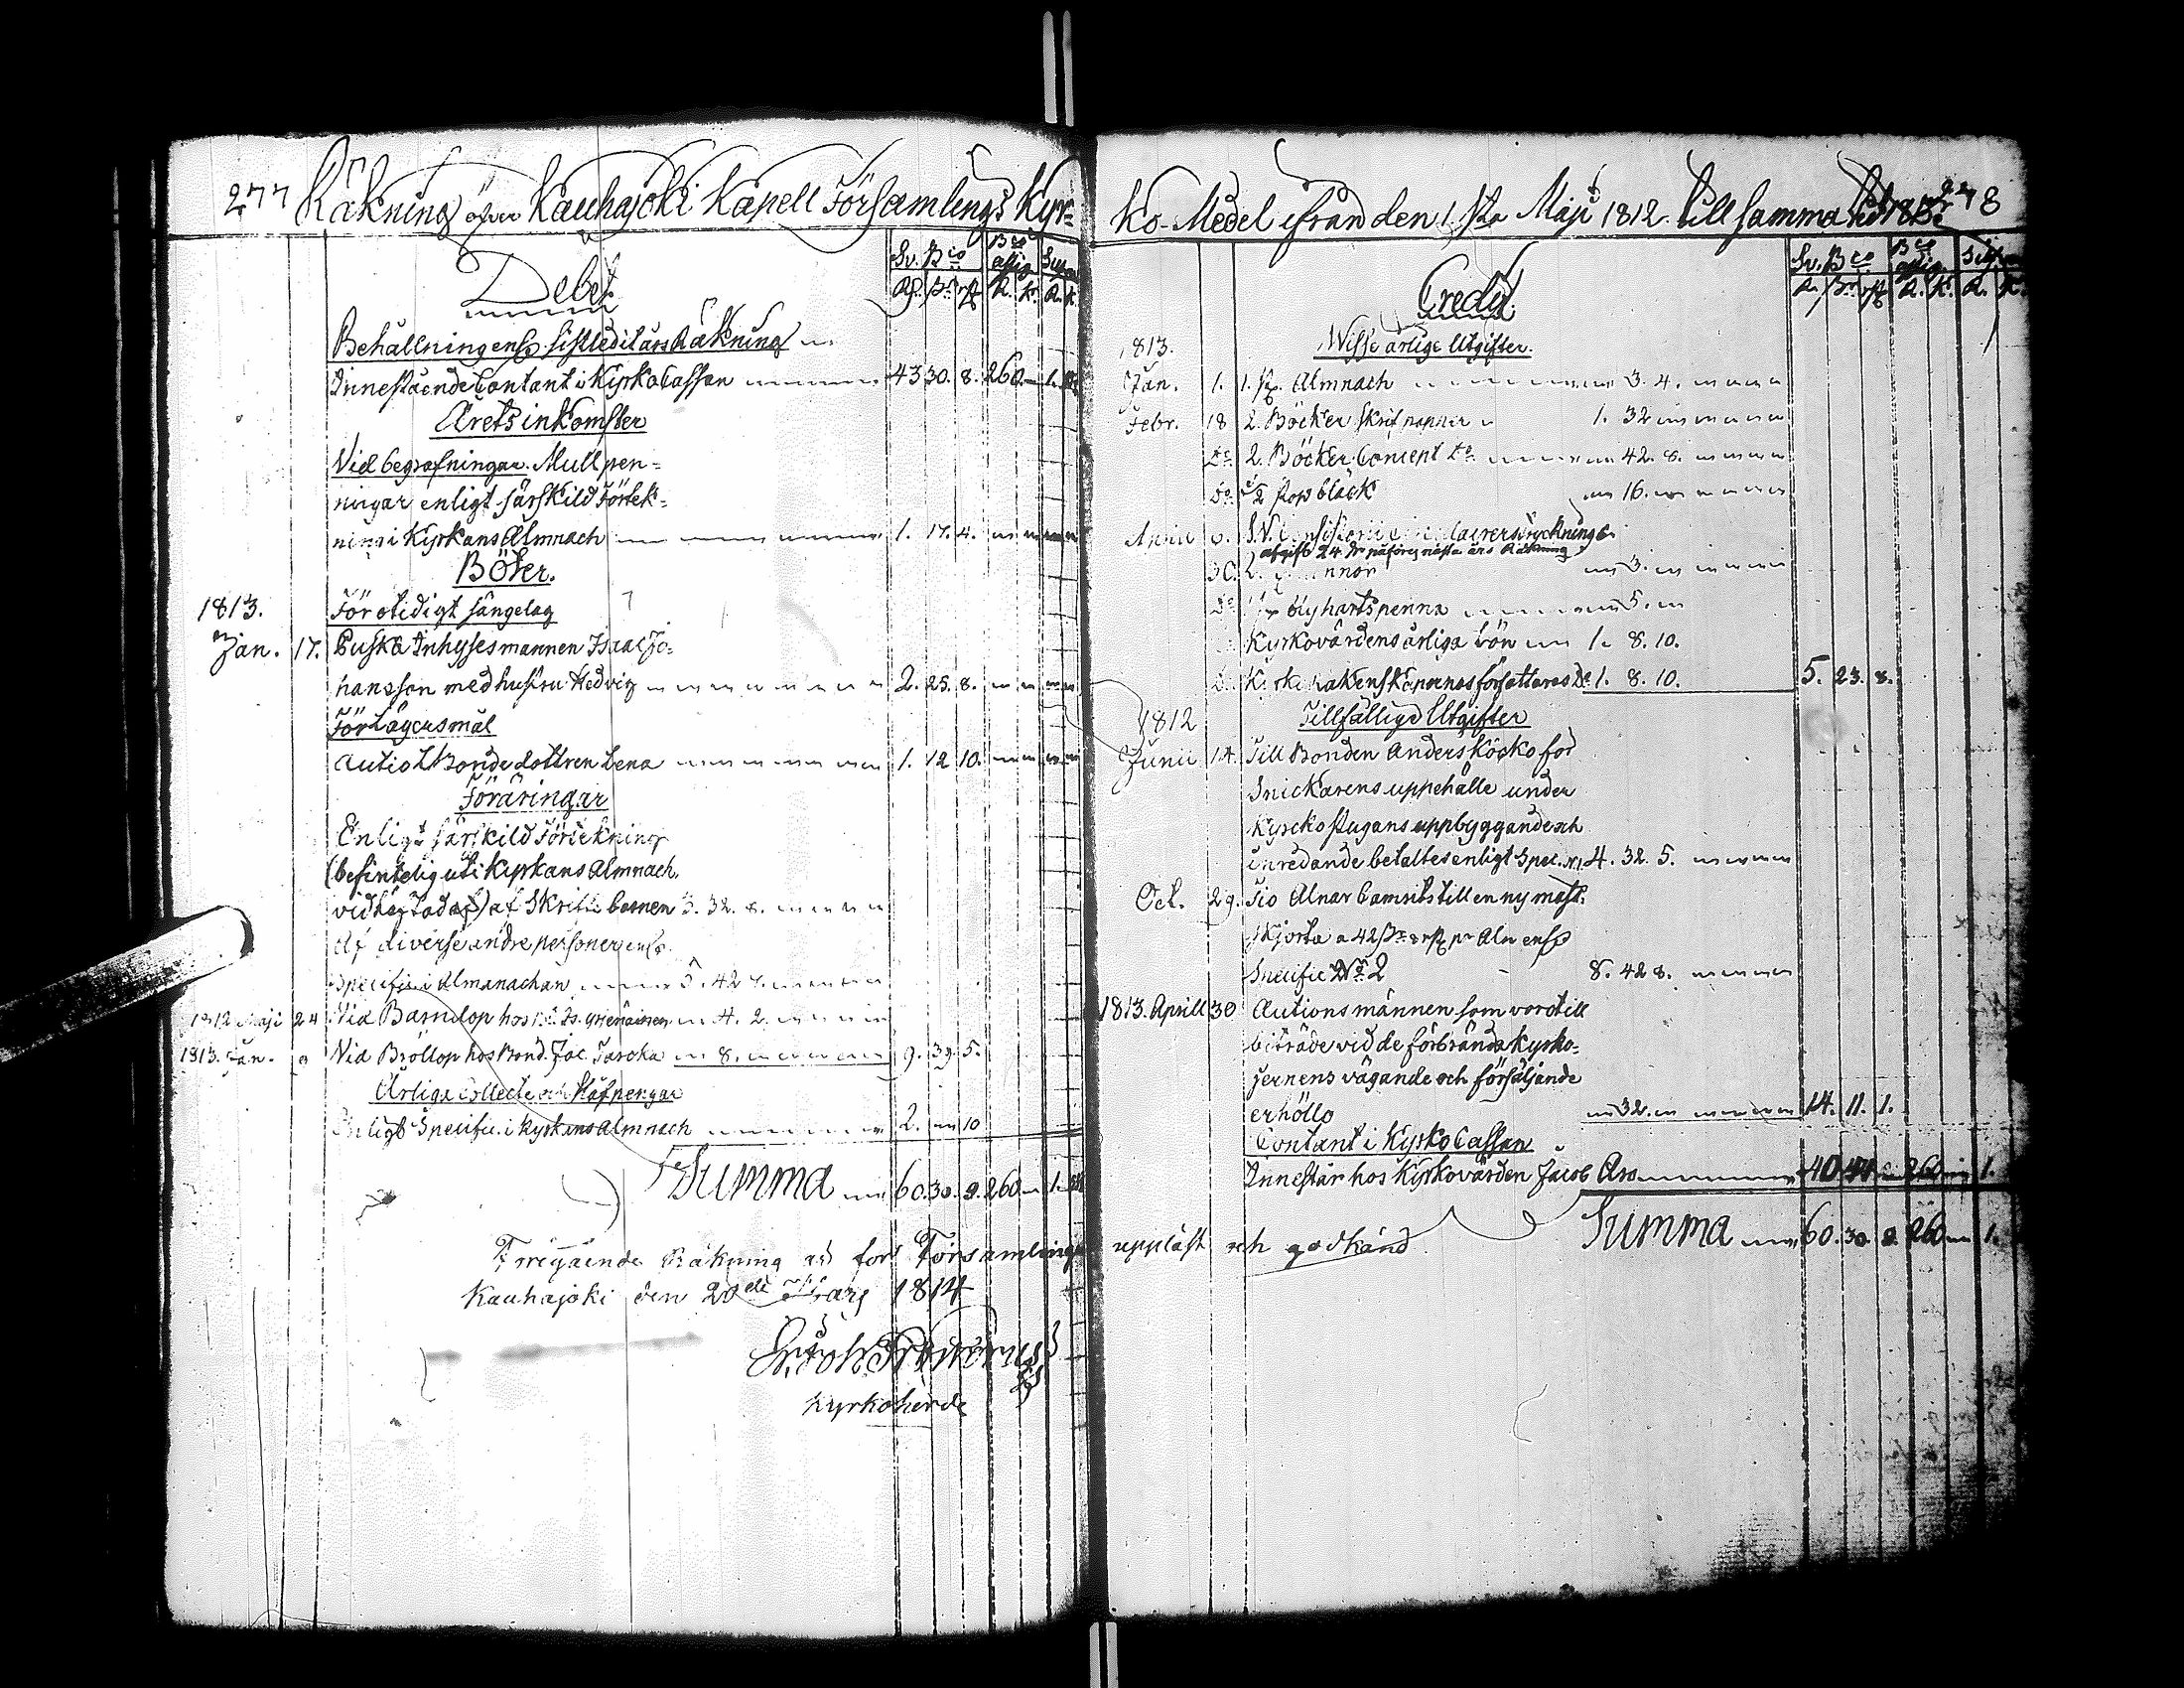 277 Räkning öfver Kauhajoki Kapell Församlings Kyr=
Debet
Sv. Bco
Bco assig
R. ß. rst. R. K. R. K.
Behållningen enl. sistledit års Räkning
Innestående Contant i KyrkoCassan 43 30. 8. 260. 1.
Årets inkomster
Vid begrafningar. Mullpen=
ningar enligt särskild Förtek=
ning i Kyrkans Almnach 1. 17. 4.
Böter.
1813. För otidigt sängelag
Jan. 17. Puska Inhyses mannen Isaac Jo=
hansson med hustru Hedvig 2. 25. 8.
För Lägersmål
Autio Bondedottren Lena 1. 12 10.
Föräringar
Enligt särskild Förtekning
(befintelig uti Kyrkans Almnach,
vidhäftad af Skrifte barnen 3. 32.
Af diverse andre personer enl.
Specific. i Almanachan 5. 42
1812 Maji 24 Vid Barndop hos 4. 2.
1813. Jan. Vid Bröllop hos Bond. Jac. 8. 9. 39. 5.
Årlige Collecte och Håfpengar
Enligt Specific. i Kyrkans Almnach 2. 10
Summa 60. 30. 9. 260 1.
Föregående Räkning är för Församlingen
Kauhajoki den 20de 1814
Kyrkoherde
Ko-Medel ifrån den 1sta Maji 1812. till samma tid 1813. 278
Credit.
Sv. Bco Bco assig.
R. ß. rst. R. K. R. K.
Wisse årlige Utgifter.
1813.
Jan. 1. 1. st. Almnach 3. 4.
Febr. 18 2. Böcker Skrifpapper 1. 32
Do 2. Böcker Concept do 42. 8.
Do 1/2 stop bläck 16.
April
afgift 24 ß. påföreg. nästa års Räkning
30. 2. 3.
Do blyhartspenna 5.
Kyrkovärdens årliga Lön 1. 8. 10.
Kyrkoräkenskapernas författares Do 1. 8. 10. 5. 23. 8.
1812 Tillfällige Utgifter
Junii 14. Till Bonden Anders Köcko för
Snickarens uppehälle under
Kyrckostugans uppbyggande och
inredande betaltes enligt Spec. N1 4. 32. 5.
Oct. 29. Tio Alnar Camrits till en ny mäss.
skjorta a 42 ß. pr Aln enl.
Specific No 2 8. 42 8.
1813. Aprill 30 Autions männen som voro till
biträde vid de förbrända Kyrko-
jernens vägande och försäljande
erhöllo 32. 14. 11. 1.
Contant i KyrkoCassan
Innestår hos Kyrkovärden Jacob Aro 40. 260 1.
Summa 60. 30. 9. 260 1.
uppläst och godkänd.